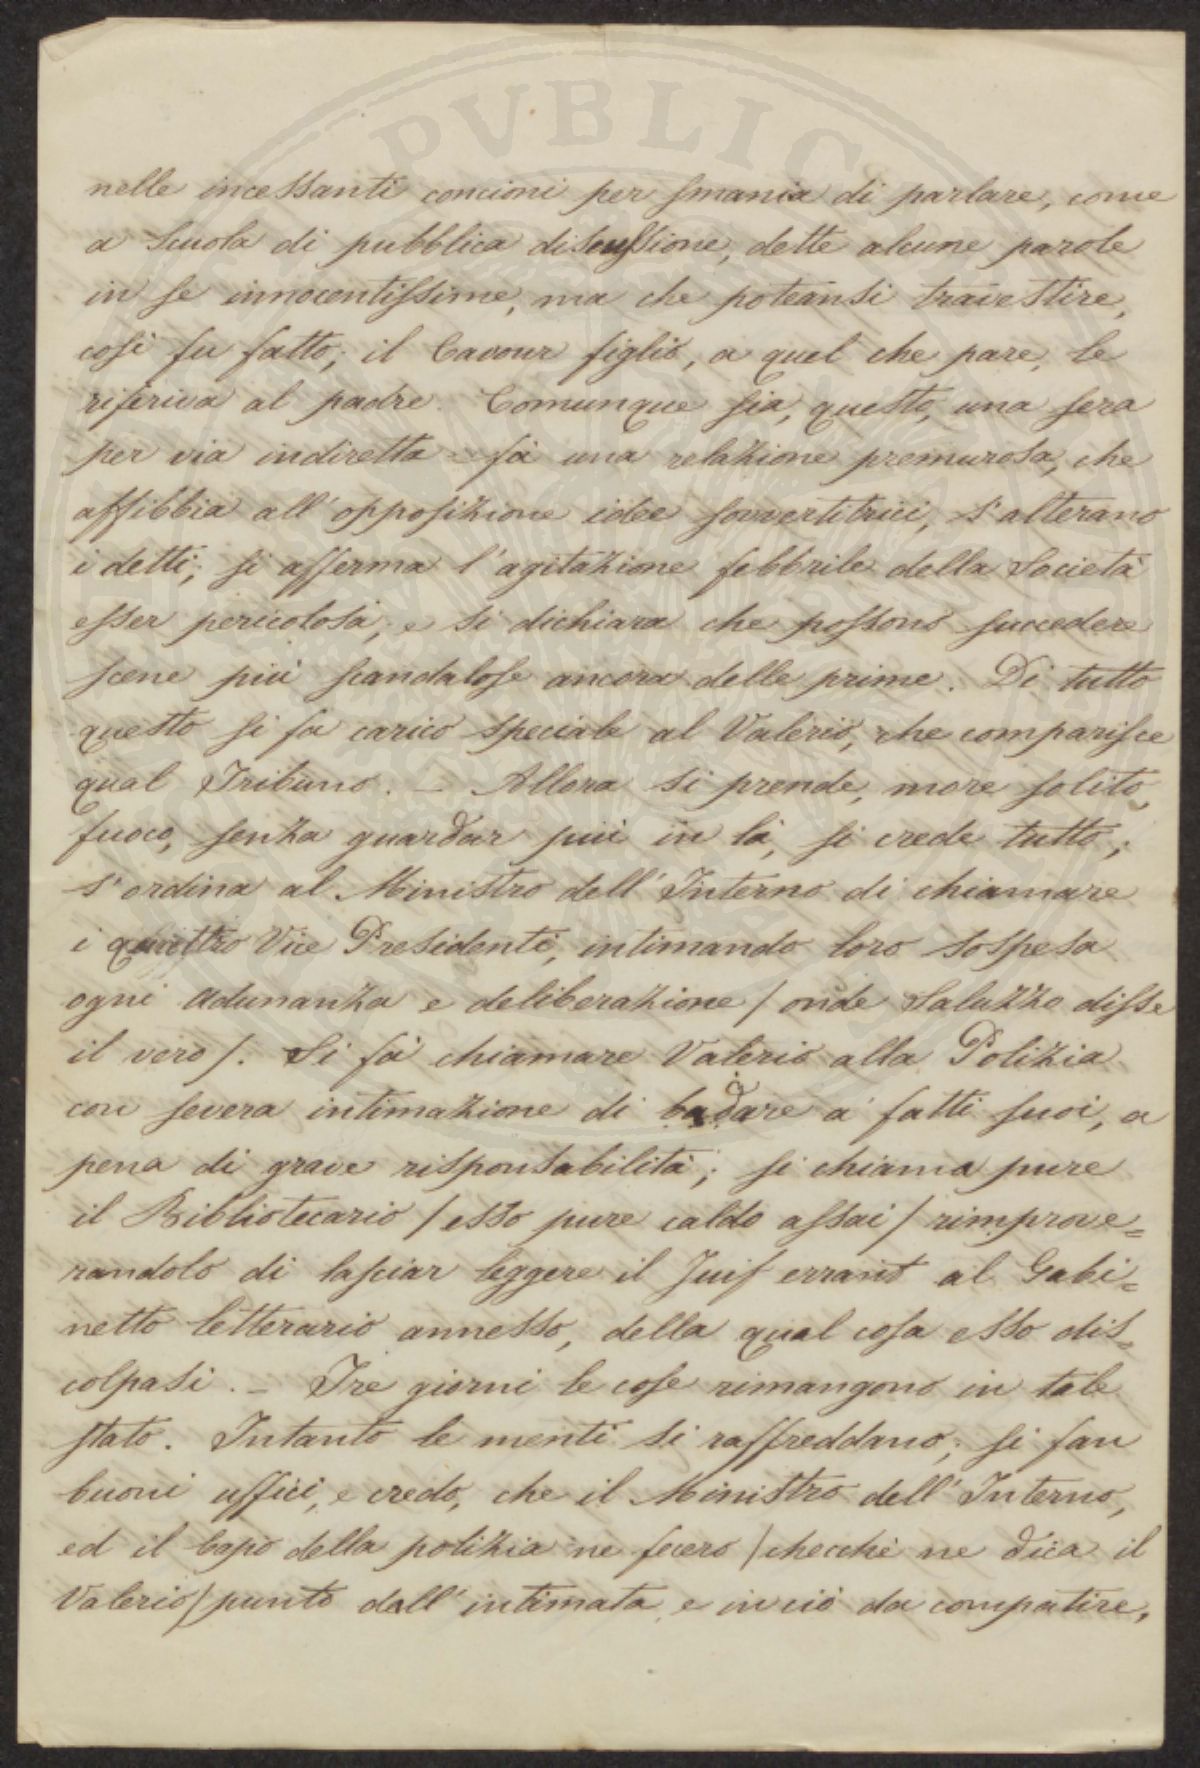 PVBLIC
nelle incessanti concioni per smania di parlare, come
a Scuola di pubblica discussione, dette alcune parole
in se innocentissime, ma che poteansi travestire,
così fu fatto; il Cavour figlio, a quel che pare, le
riferiva al padre. Comunque sia, questo, una sera
per via indiretta - fa una relazione premurosa, che
affibbia all'opposizione idee sovvertitrici, s'alterano
i detti; si afferma l'agitazione febbrile della Società
esser pericolosa; e si dichiara che possono succedere
scene più scandalose ancora delle prime. Di tutto
questo si fa carico speciale al Valerio, che comparisce
qual Tribuno. - Allora si prende, more solito,
fuoco, senza guardar più in là, si crede tutto;
s'ordina al Ministro dell'Interno di chiamare
i quattro Vice Presidenti, intimando loro sospesa
ogni adunanza e deliberazione / onde Saluzzo disse
il vero /. Si fà chiamare Valerio alla Polizia
con severa intimazione di badare a' fatti suoi, a
pena di grave risponsabilità; si chiama pure
il Bibliotecario / esso pure caldo assai / rimprove=
randolo di lasciar leggere il Juif errant al Gabi=
netto letterario annesso, della qual cosa esso dis=
colpasi. - Tre giorni le cose rimangono in tale
stato. Intanto le menti si raffreddano; si fan
buoni uffici, e credo, che il Ministro dell'Interno,
ed il Capo della polizia ne fecero / checchè ne dica il
Valerio / punto dall'intimata, e in ciò da compatire,